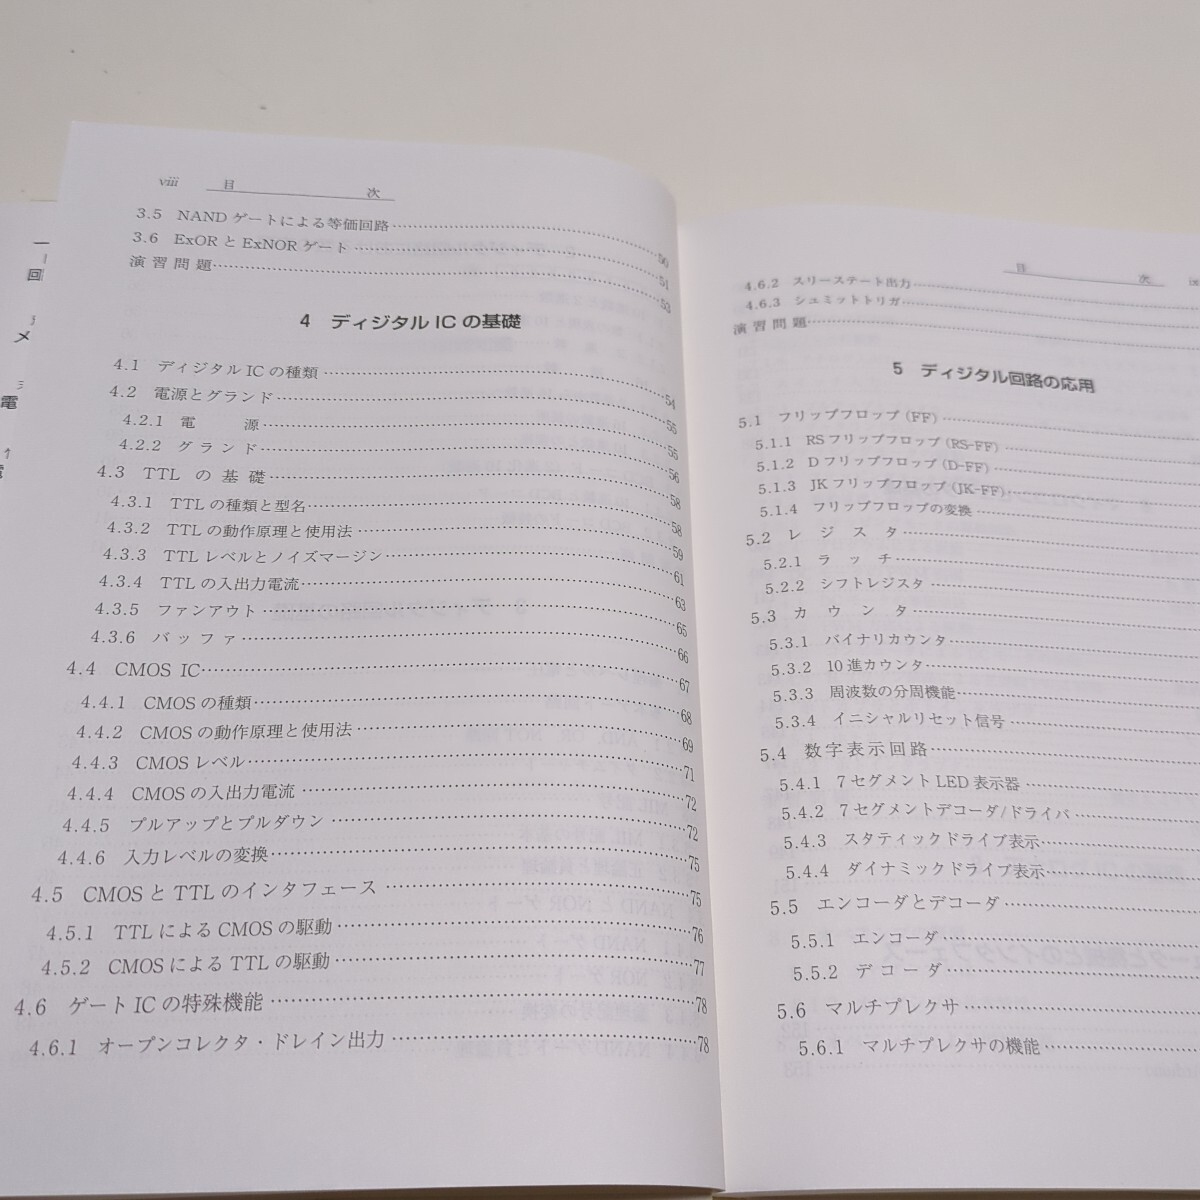 viii 目 次
3.5 NAND ゲートによる等価回路 50
3.6 ExOR と ExNOR ゲート 51
演習問題 53
4 ディジタル IC の基礎
4.1 ディジタル IC の種類 54
4.2 電源とグランド 55
4.2.1 電 源 55
4.2.2 グランド 56
4.3 TTL の基礎 58
4.3.1 TTL の種類と型名 58
4.3.2 TTL の動作原理と使用法 59
4.3.3 TTL レベルとノイズマージン 61
4.3.4 TTL の入出力電流 63
4.3.5 ファンアウト 65
4.3.6 バッファ 66
4.4 CMOS IC 67
4.4.1 CMOS の種類 68
4.4.2 CMOS の動作原理と使用法 69
4.4.3 CMOS レベル 71
4.4.4 CMOS の入出力電流 72
4.4.5 プルアップとプルダウン 72
4.4.6 入力レベルの変換 75
4.5 CMOS と TTL のインタフェース 75
4.5.1 TTL による CMOS の駆動 76
4.5.2 CMOS による TTL の駆動 77
4.6 ゲート IC の特殊機能 78
4.6.1 オープンコレクタ・ドレイン出力 78
目 次 ix
4.6.2 スリーステート出力
4.6.3 シュミットトリガ
演習問題
5 ディジタル回路の応用
5.1 フリップフロップ (FF)
5.1.1 RS フリップフロップ (RS-FF)
5.1.2 D フリップフロップ (D-FF)
5.1.3 JK フリップフロップ (JK-FF)
5.1.4 フリップフロップの変換
5.2 レジスタ
5.2.1 ラッチ
5.2.2 シフトレジスタ
5.3 カウンタ
5.3.1 バイナリカウンタ
5.3.2 10 進カウンタ
5.3.3 周波数の分周機能
5.3.4 イニシャルリセット信号
5.4 数字表示回路
5.4.1 7 セグメント LED 表示器
5.4.2 7 セグメントデコーダ/ドライバ
5.4.3 スタティックドライブ表示
5.4.4 ダイナミックドライブ表示
5.5 エンコーダとデコーダ
5.5.1 エンコーダ
5.5.2 デコーダ
5.6 マルチプレクサ
5.6.1 マルチプレクサの機能